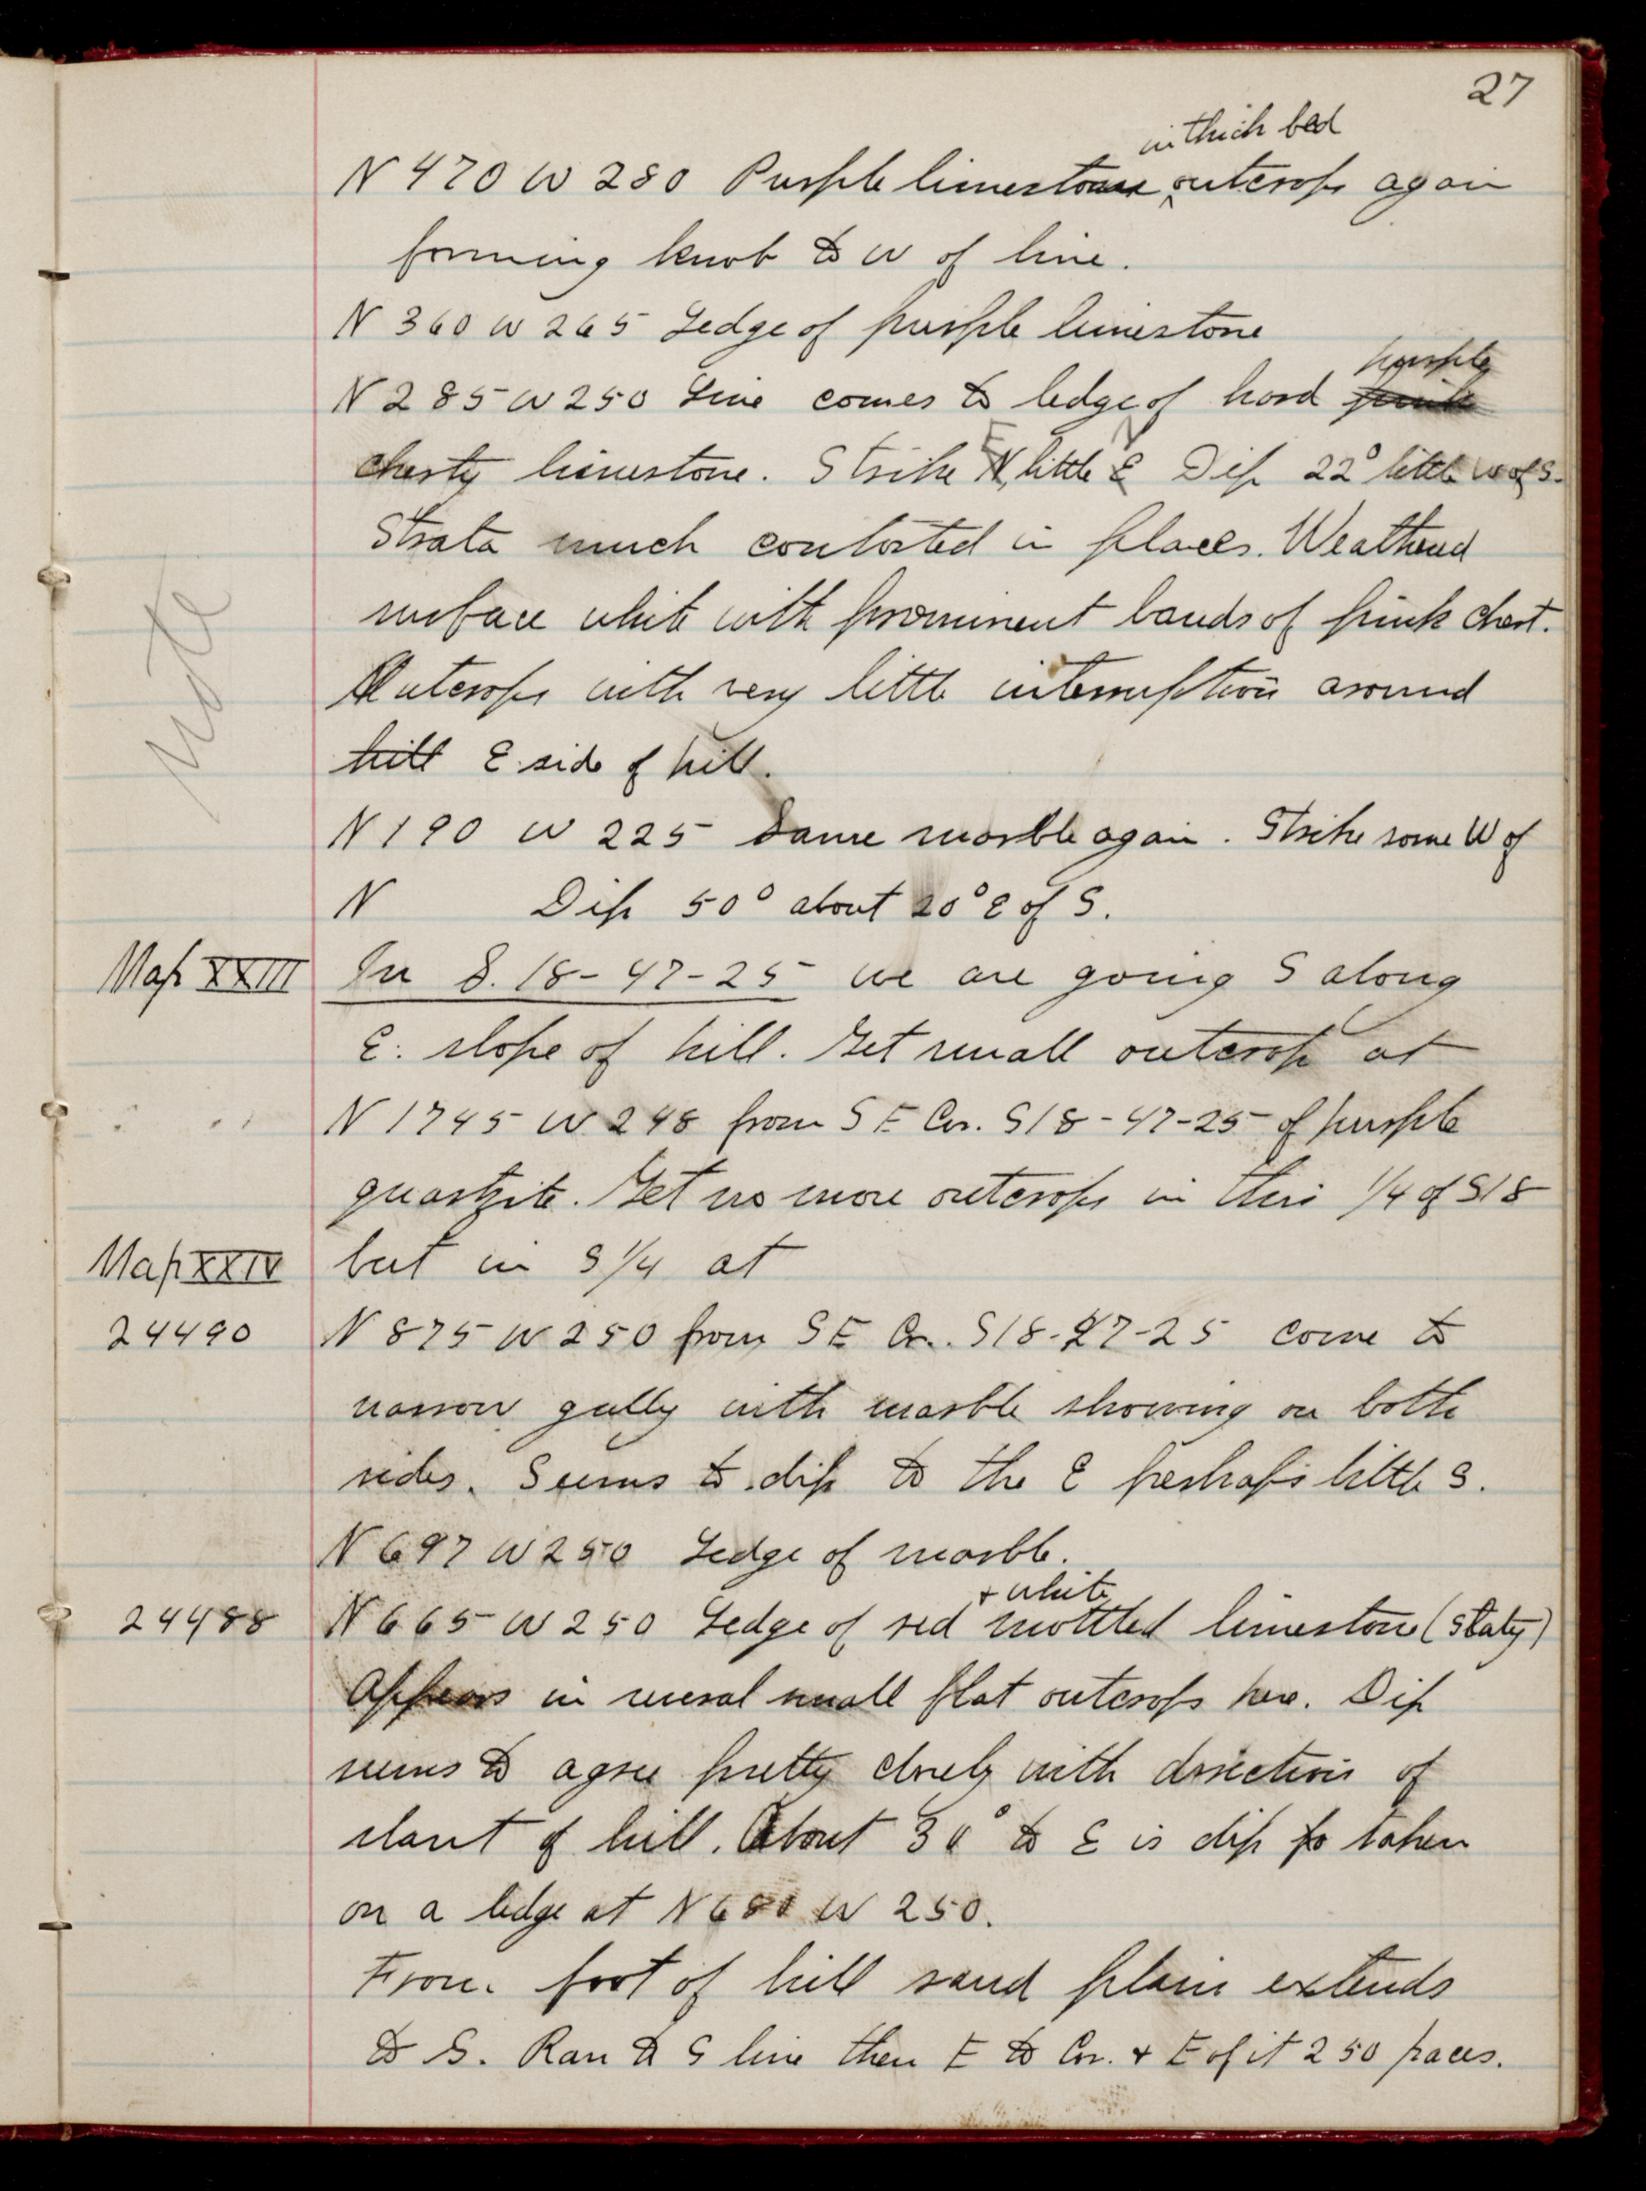 27
in thick bed
N 470 W 280 Purple limestone outcrops again
forming knob to W of line.
N 360 W 265 Ledge of purple limestone
purple
N 285 W 250 Line comes to ledge of hard pink
cherty limestone. Strike E N little N E Dip 22° little W of S.
Strata much contorted in places. Weathered
surface white with prominent bands of pink chert.
Note
Outcrops with very little interruption around
hill E side of hill.
N 190 W 225 Same marble again. Strike some W of
N Dip 50° about 20° E of S.
Map XXIII In S. 18-47-25 we are going S along
E. slope of hill. Get small outcrop at
N 1745 W 248 from SE Cor. S18-47-25 of purple
quartzite. Get no more outcrops in this 1/4 of S18
Map XXIV but in S 1/4 at
24490 N 875 W 250 from SE Cor. S18-47-25 come to
narrow gully with marble showing on both
sides. Seems to dip to the E perhaps little S.
N 697 W 250 Ledge of marble.
+ white
24488 N 665 W 250 Ledge of red mottled limestone (slaty)
Appears in several small flat outcrops here. Dip
seems to agree pretty closely with direction of
slant of hill. About 30° to E is dip taken
on a ledge at N 680 W 250.
From foot of hill sand plain extends
to S. Ran to S line then E to Cor. + E of it 250 paces.